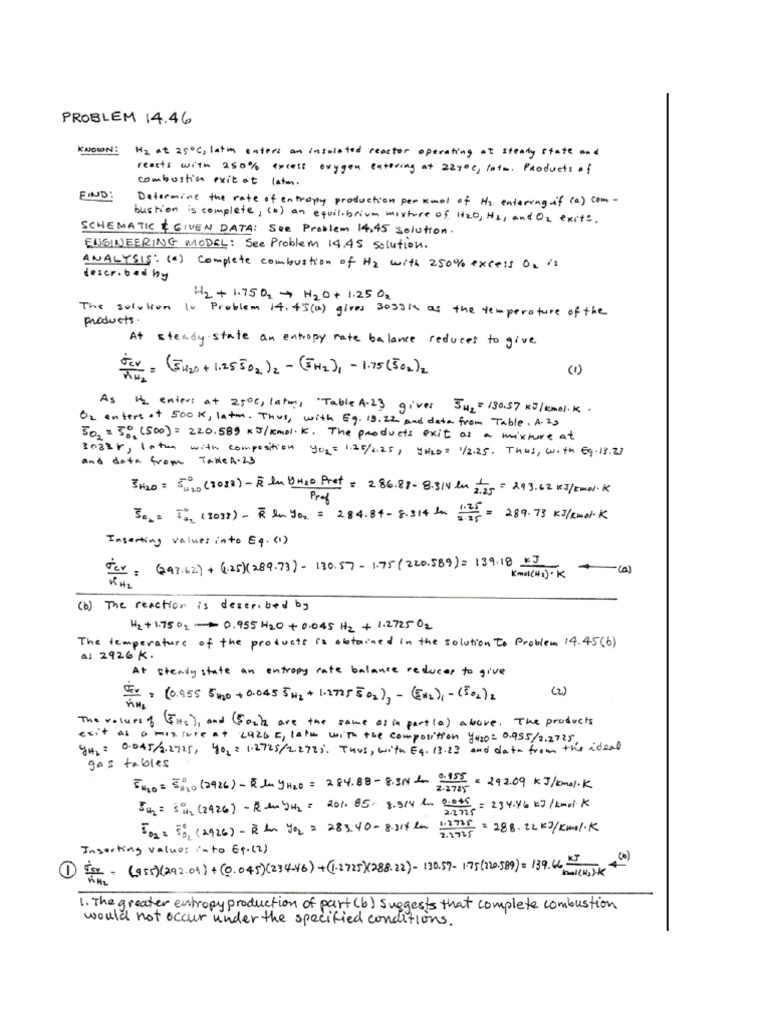 PROBLEM 14.46
KNOWN: H2 at 25°C, 1atm enters an insulated reactor operating at steady state and
reacts with 250% excess oxygen entering at 227°C, 1atm. Products of
combustion exit at 1atm.
FIND: Determine the rate of entropy production per kmol of H2 entering if (a) com-
bustion is complete, (b) an equilibrium mixture of H2O, H2, and O2 exits.
SCHEMATIC & GIVEN DATA: See Problem 14.45 solution.
ENGINEERING MODEL: See Problem 14.45 Solution.
ANALYSIS: (a) Complete combustion of H2 with 250% excess O2 is
described by
H2 + 1.75 O2 → H2O + 1.25 O2
The solution to Problem 14.45(a) gives 3033K as the temperature of the
products.
At steady-state an entropy rate balance reduces to give
σ̇cv/ṅH2 = (s̄H2O + 1.25 s̄O2)2 - (s̄H2)1 - 1.75 (s̄O2)2 (1)
As H2 enters at 25°C, 1atm, Table A-23 gives s̄H2 = 130.57 kJ/kmol·K.
O2 enters at 500 K, 1atm. Thus, with Eq. 13.22 and data from Table. A-23
s̄O2 = s̄°O2(500) = 220.589 kJ/kmol·K. The products exit as a mixture at
3033K, 1atm with composition yO2 = 1.25/2.25, yH2O = 1/2.25. Thus, with Eq. 13.23
and data from Table A-23
s̄H2O = s̄°H2O(3033) - R̄ ln yH2O Pref/Pref = 286.88 - 8.314 ln 1/2.25 = 293.62 kJ/kmol·K
s̄O2 = s̄°O2(3033) - R̄ ln yO2 = 284.84 - 8.314 ln 1.25/2.25 = 289.73 kJ/kmol·K
Inserting values into Eq. (1)
σ̇cv/ṅH2 = (293.62) + (1.25)(289.73) - 130.57 - 1.75 (220.589) = 139.18 kJ/kmol(H2)·K ← (a)
(b) The reaction is described by
H2 + 1.75 O2 → 0.955 H2O + 0.045 H2 + 1.2725 O2
The temperature of the products is obtained in the solution to Problem 14.45(b)
as 2926 K.
At steady state an entropy rate balance reduces to give
σ̇cv/ṅH2 = (0.955 s̄H2O + 0.045 s̄H2 + 1.2725 s̄O2)3 - (s̄H2)1 - (s̄O2)2 (2)
The values of (s̄H2)1 and (s̄O2)2 are the same as in part (a) above. The products
exit as a mixture at 2926 K, 1atm with the composition yH2O = 0.955/2.2725,
yH2 = 0.045/2.2725, yO2 = 1.2725/2.2725. Thus, with Eq. 13.23 and data from the ideal
gas tables
s̄H2O = s̄°H2O(2926) - R̄ ln yH2O = 284.88 - 8.314 ln 0.955/2.2725 = 292.09 kJ/kmol·K
s̄H2 = s̄°H2(2926) - R̄ ln yH2 = 201.85 - 8.314 ln 0.045/2.2725 = 234.46 kJ/kmol·K
s̄O2 = s̄°O2(2926) - R̄ ln yO2 = 283.40 - 8.314 ln 1.2725/2.2725 = 288.22 kJ/kmol·K
Inserting values into Eq. (2)
① σ̇cv/ṅH2 = (.955)(292.09) + (0.045)(234.46) + (1.2725)(288.22) - 130.57 - 1.75(220.589) = 139.66 kJ/kmol(H2)·K ← (b)
1. The greater entropy production of part (b) suggests that complete combustion
would not occur under the specified conditions.